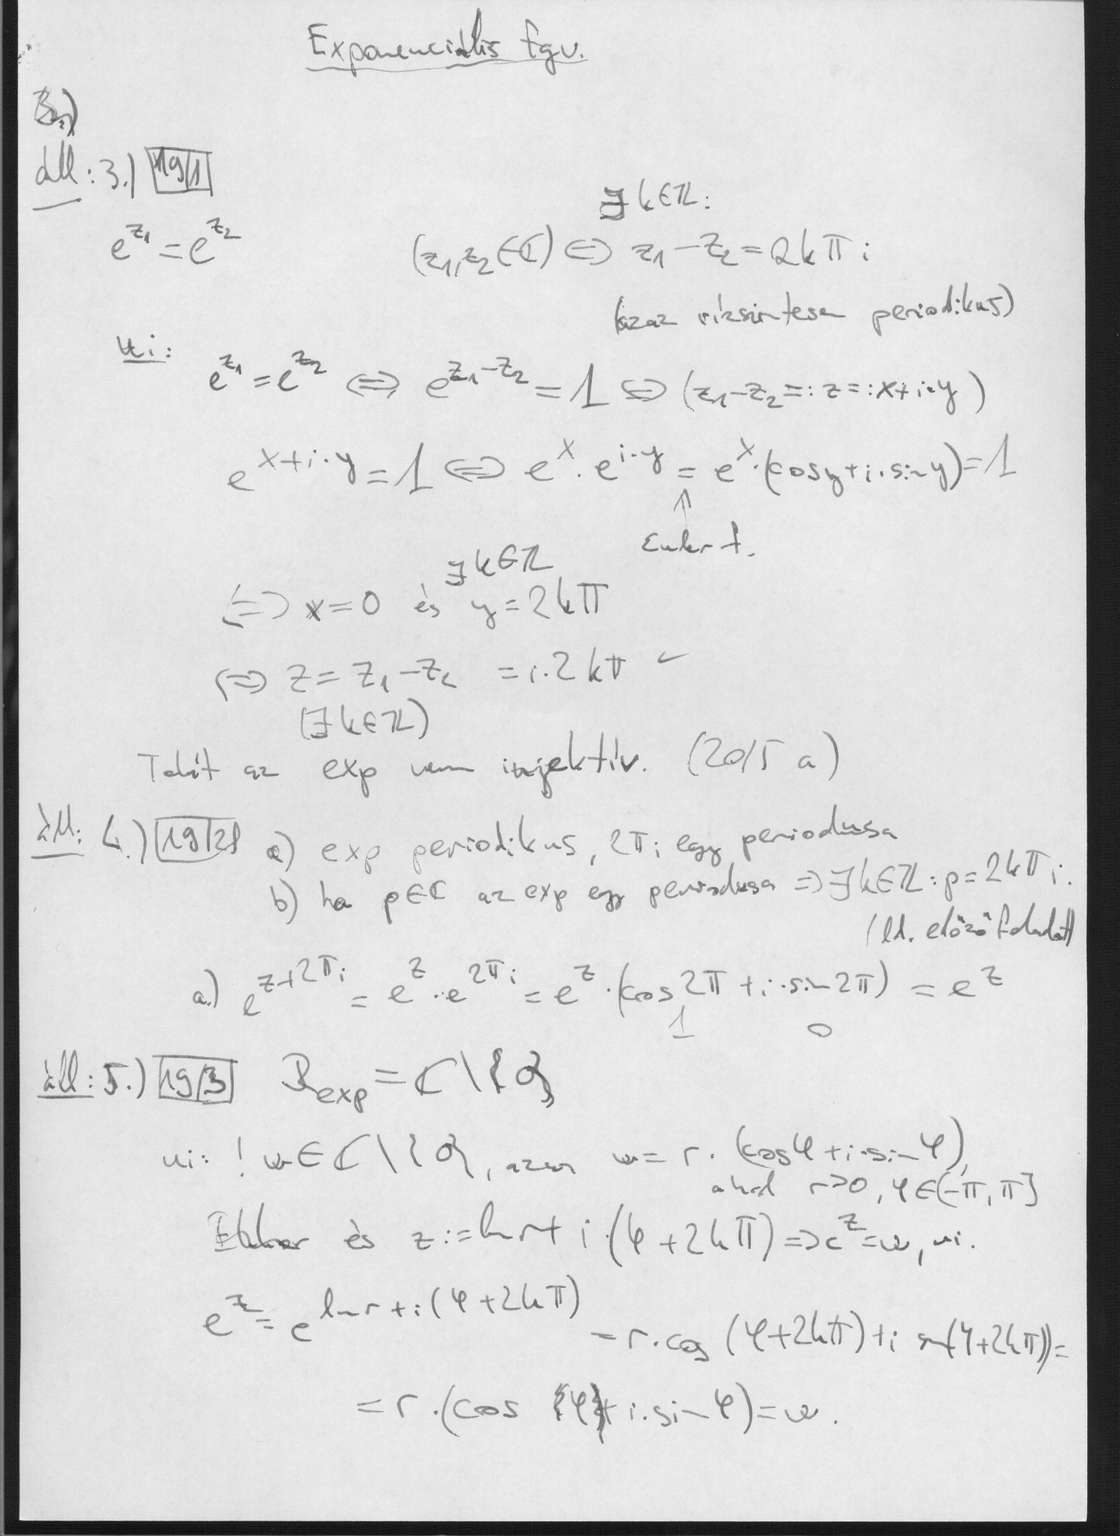 Exponenciális fgv.
áll: 3.) 19/1
∃ k∈ℤ:
e^{z₁} = e^{z₂} (z₁,z₂∈ℂ) ⇔ z₁−z₂ = 2kπi
(azaz periodikus)
ui: e^{z₁} = e^{z₂} ⇔ e^{z₁−z₂} = 1 ⇔ (z₁−z₂ =: z =: x+i·y)
e^{x+i·y} = 1 ⇔ e^x · e^{i·y} = e^x·(cos y+i·sin y) = 1
↑
Euler f.
∃ k∈ℤ
⇔ x=0 és y=2kπ
⇔ z = z₁−z₂ = i·2kπ ✓
(∃ k∈ℤ)
Tehát az exp nem injektív. (20/5 a)
áll: 4.) 19/2 a) exp periodikus, 2πi egy periodusa
b) ha p∈ℂ az exp egy periodusa ⇒ ∃ k∈ℤ: p=2kπi.
(ld. előző feladat)
a.) e^{z+2πi} = e^z · e^{2πi} = e^z·(cos 2π + i·sin 2π) = e^z
1 0
áll: 5.) 19/3 R_{exp} = ℂ\{0}
ui: ! w∈ℂ\{0}, azaz w = r·(cos φ+i·sin φ),
ahol r>0, φ∈(-π,π]
és z := ln r + i·(φ+2kπ) ⇒ e^z = w, ui.
e^z = e^{ln r + i(φ+2kπ)} = r·cos (φ+2kπ)+i sin(φ+2kπ)) =
= r·(cos (φ)+ i·sin φ) = w.